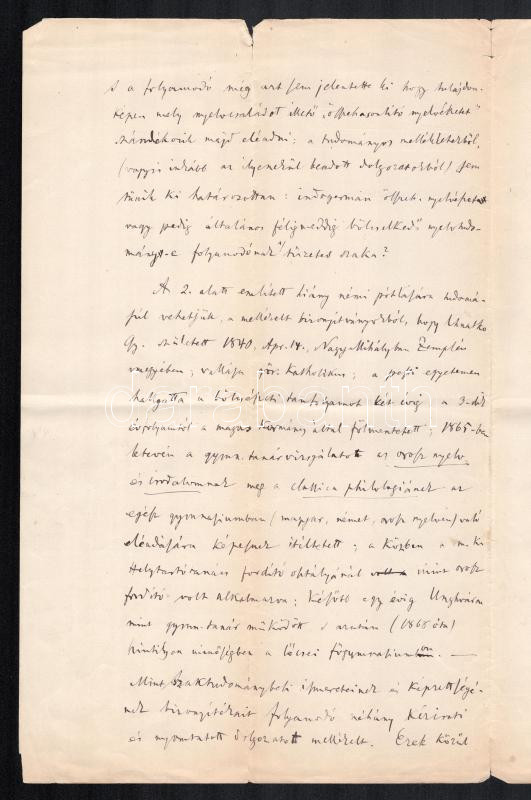 s a folyamodó még azt sem jelentette ki hogy tulajdon-
képen mely nyelvcsaládot illető „összehasonlító nyelvészetet"
szándékozik majd előadni; a tudományos mellékletekből,
(vagyis inkább az ilyenekül beadott dolgozatokból) sem
tünik ki határozottan: indogermán összeh. nyelvészetet
vagy pedig általános féligmeddig bölcselkedő nyelvtudo-
mányt-e folyamodónak tüzetes szaka?
A 2. alatt említett hiány némi pótlására tudomá-
súl vehetjük, a mellékelt bizonyítványokból, hogy
Gy. született 1840, Apr. 14, Nagy Mihályban Zemplén
vmegyében; vallása gör. katholikus; a pesti egyetemen
hallgatta a bölcsészeti tanfolyamot két évig a 3-dik
évfolyamtól a magas kormány által fölmentetett; 1865-ben
letevén a gymn. tanárvizsgálatot az orosz nyelv
és irodalomnak meg a classica philologiának az
egész gymnasiumban (magyar, német, orosz nyelven) való
előadására képesnek itéltetett; a közben a m. kir.
Helytartótanács fordító osztályánál mint orosz
fordító volt alkalmazva; később egy évig Ungváron
mint gymn. tanár működött s azután (1868 óta)
hasonló minőségben a lőcsei főgymnasiumban. —
Mint szaktudománybeli ismereteinek és képzettségé-
nek bizonyítékait folyamodó néhány kézirati
és nyomtatott dolgozatot mellékelt. Ezek közül
darabanth